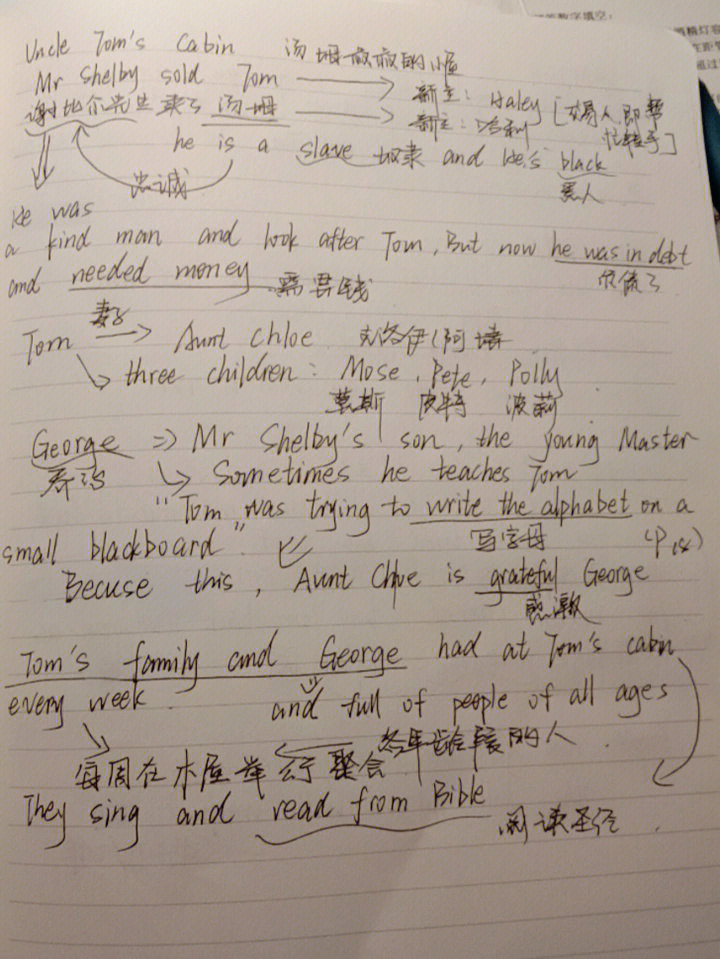 Uncle Tom's Cabin 汤姆叔叔的小屋
Mr Shelby sold Tom 新主: Haley [交易人,即帮
谢比尔先生卖了汤姆 新主: 哈利 忙转手]
he is a slave 奴隶 and he's black
忠诚 黑人
He was
a kind man and look after Tom, But now he was in debt
and needed money 需要钱 欠债了
妻子
Tom Aunt Chloe 克洛伊(阿婶
three children: Mose, Pete, Polly
莫斯 皮特 波莉
George => Mr Shelby's son, the young Master
乔治 Sometimes he teaches Tom
"Tom was trying to write the alphabet on a
small blackboard" 写字母
Becuse this, Aunt Chloe is grateful George
感激
Tom's family and George had at Tom's cabin
every week. and full of people of all ages
各年龄段的人
每周在木屋举行聚会
They sing and read from Bible
阅读圣经.